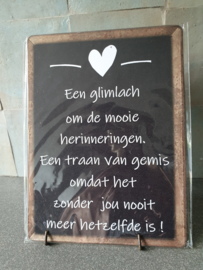 Een glimlach
om de mooie
herinneringen.
Een traan van gemis
omdat het
zonder jou nooit
meer hetzelfde is !